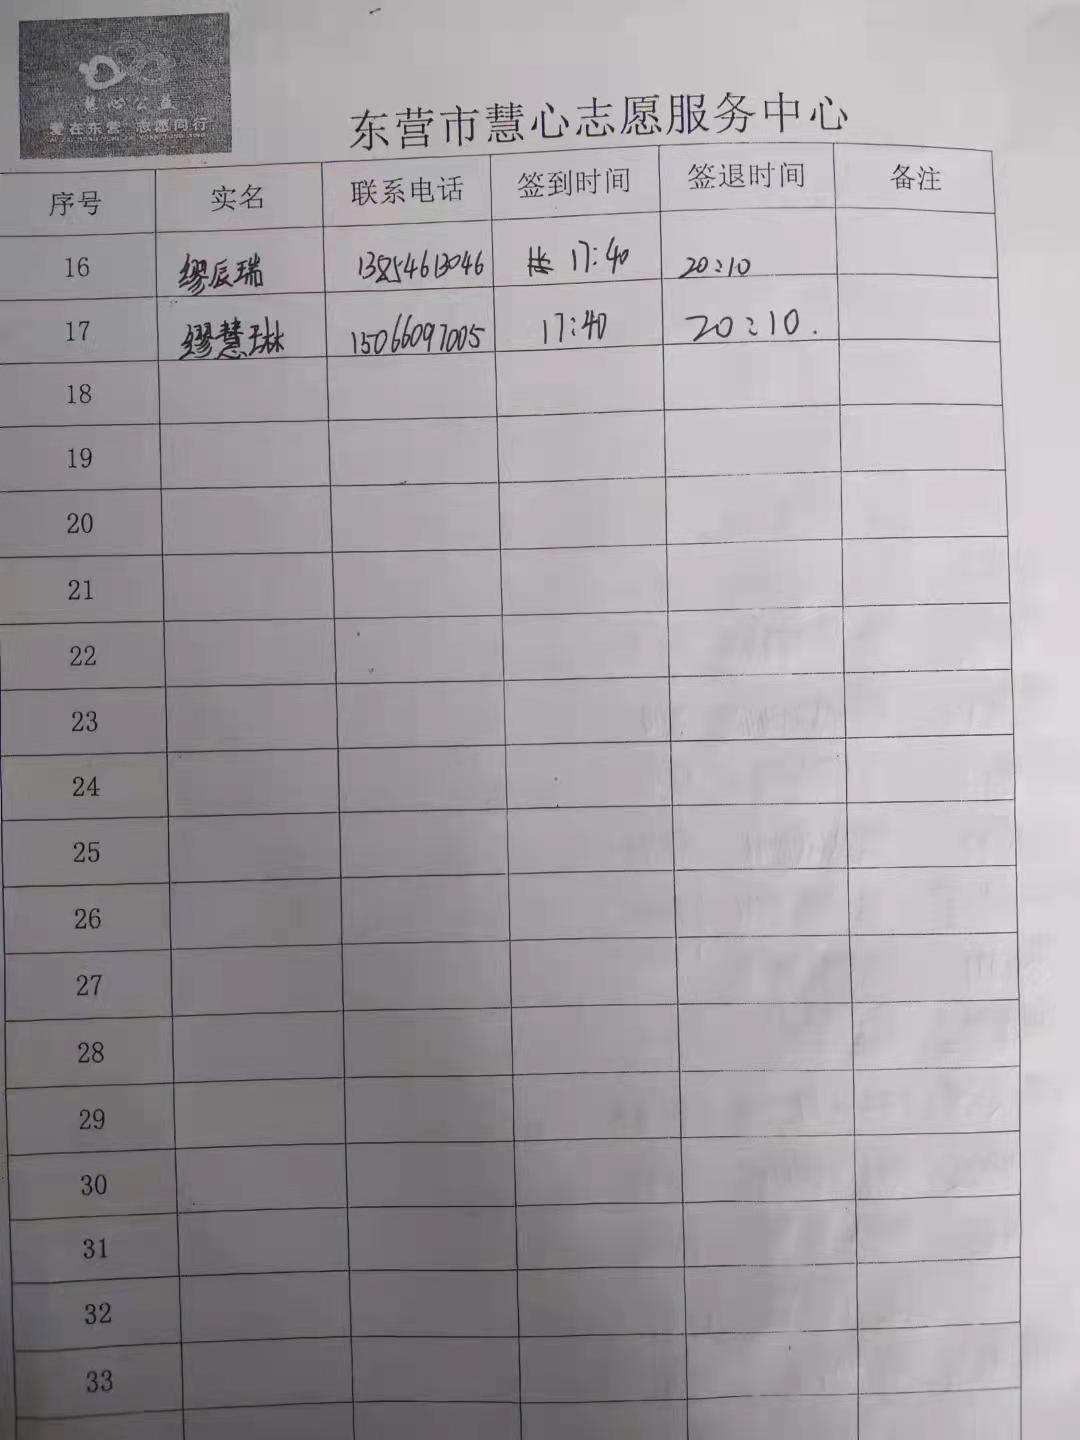 慧心公益
爱在东营 志愿同行
东营市慧心志愿服务中心
序号 实名 联系电话 签到时间 签退时间 备注
16 缪辰瑞 13854613046 17:40 20:10
17 缪慧琳 15066097005 17:40 20:10.
18
19
20
21
22
23
24
25
26
27
28
29
30
31
32
33